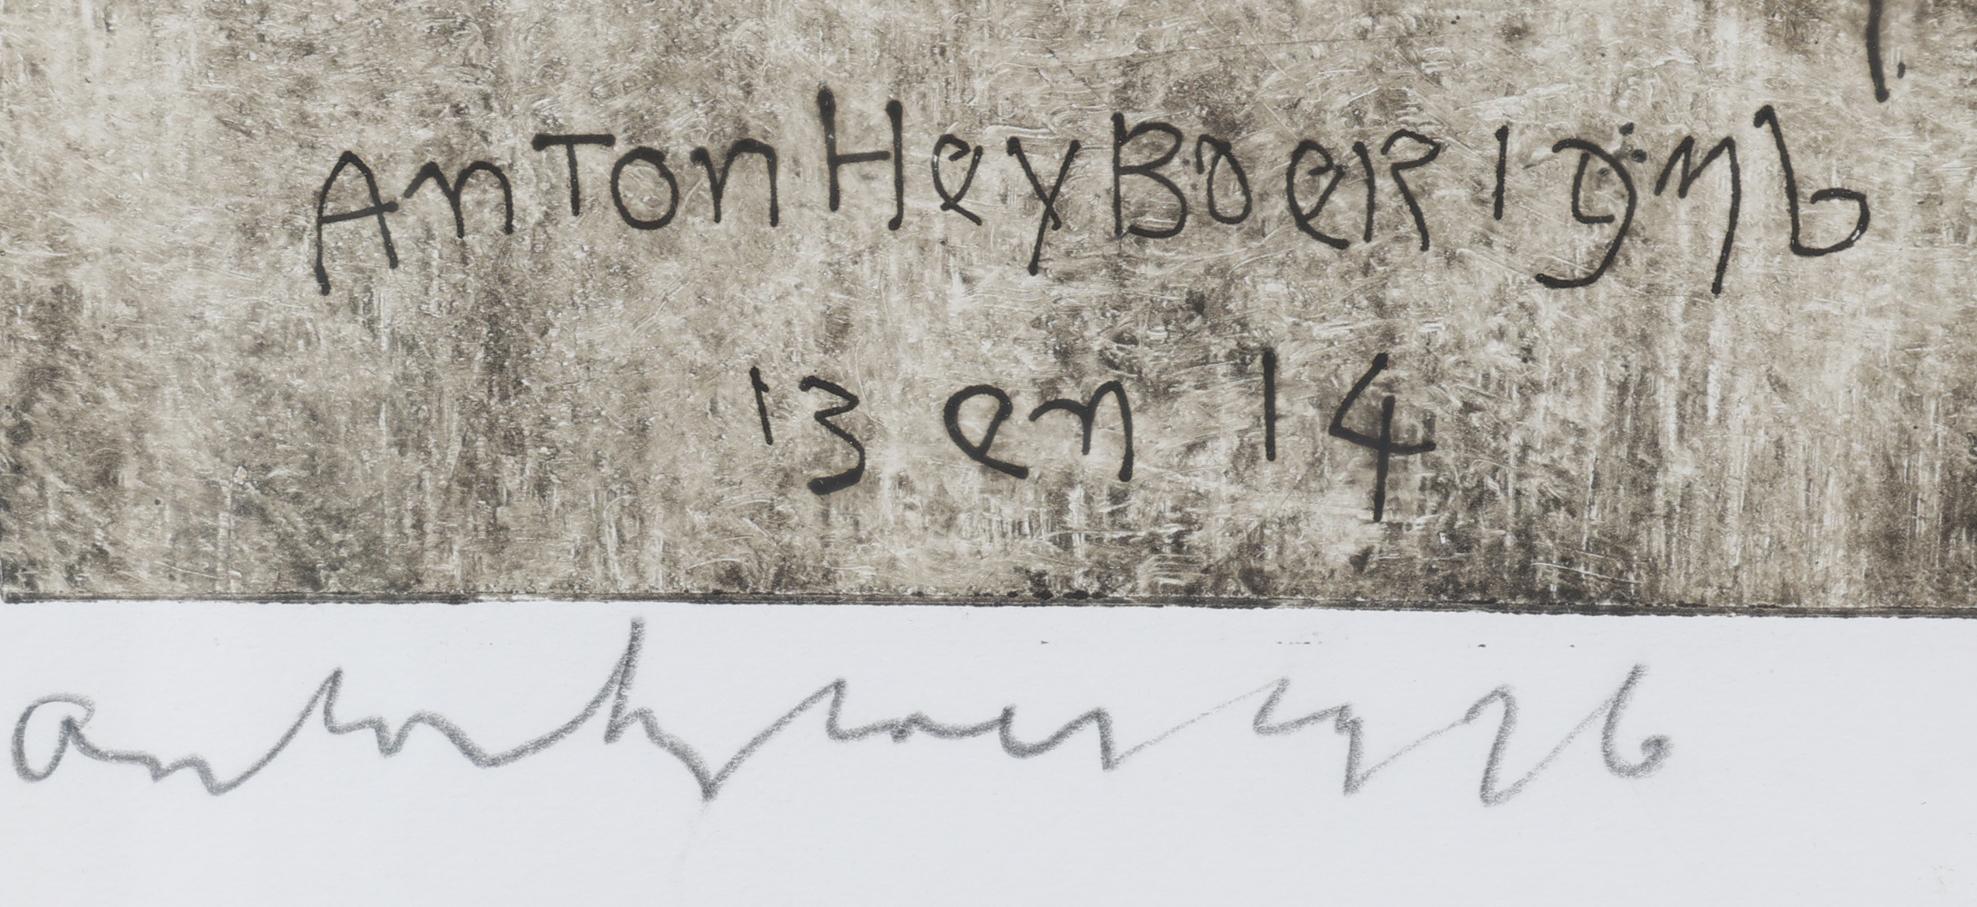 AnTon HeyBoer 1976
13 en 14
anton heyboer 1976